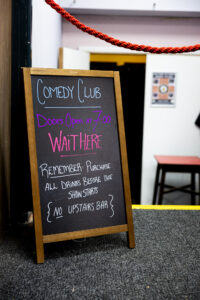 COMEDY CLUB
DOORS
WAIT HERE
REMEMBER PURCHASE
ALL DRINKS BEFORE THE
SHOW STARTS
{NO UPSTAIRS BAR}